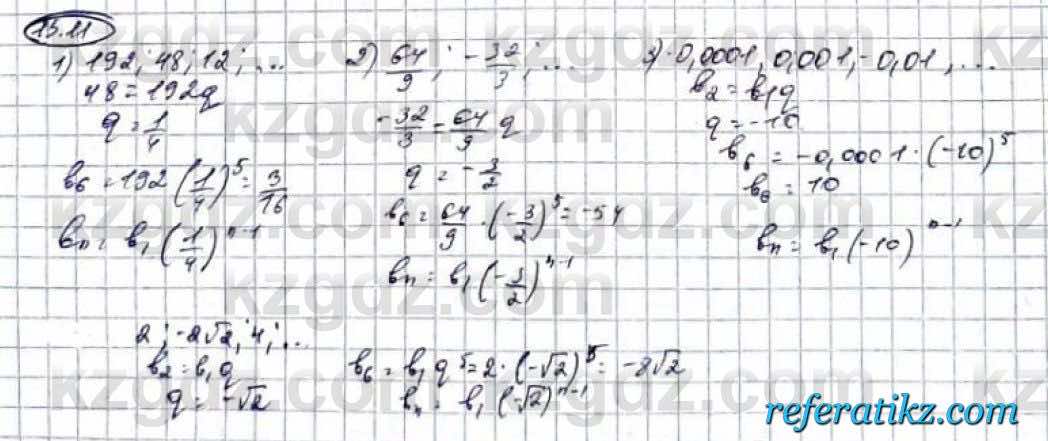 13.11
1) 192; 48; 12; ...
48 = 192q
q = 1/4
b₆ = 192 (1/4)⁵ = 3/16
bₙ = b₁ (1/4)ⁿ⁻¹
2) 64/9; -32/3; ...
-32/3 = 64/9 q
q = -3/2
b₆ = 64/9 · (-3/2)⁵ = -54
bₙ = b₁ (-3/2)ⁿ⁻¹
3) -0,0001, 0,001, -0,01, ...
b₂ = b₁q
q = -10
b₆ = -0,0001 · (-10)⁵
b₆ = 10
bₙ = b₁ (-10)ⁿ⁻¹
2; -2√2; 4; ...
b₂ = b₁q
q = -√2
b₆ = b₁q⁵ = 2 · (-√2)⁵ = -8√2
bₙ = b₁ (-√2)ⁿ⁻¹
kzgdz.com
referatikz.com